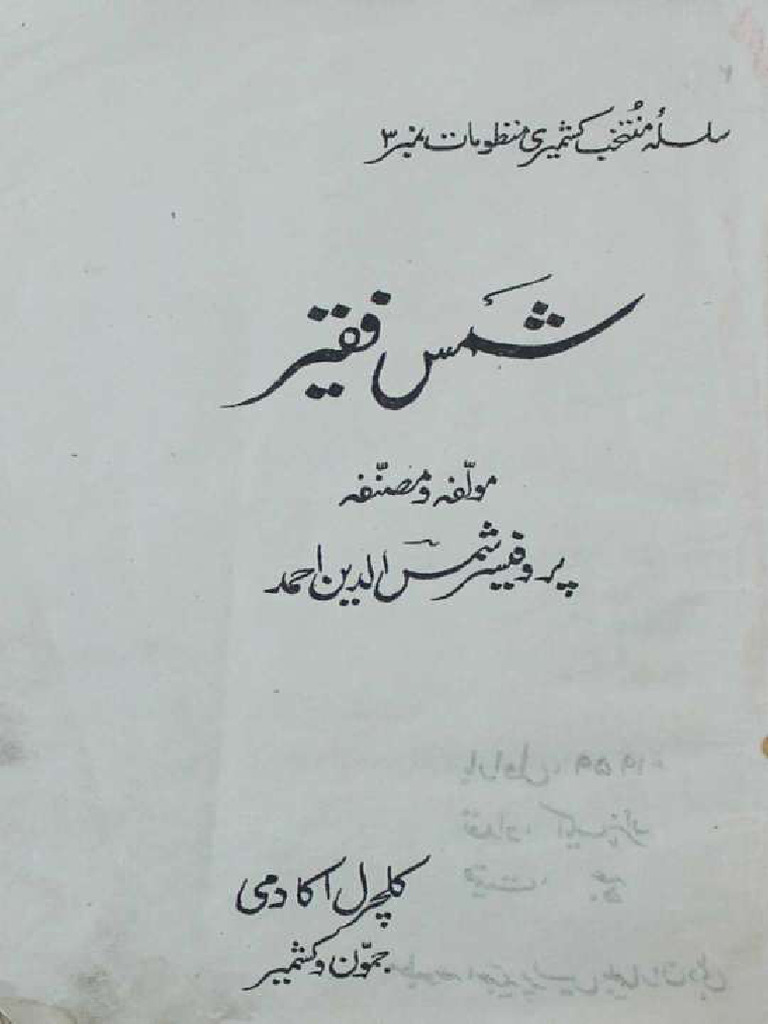 سلسلۂ مُنتخب کشمیری منظومات نمبر ۳
شمَس فقیر
مولّفہ و مصنّفہ
پروفیسر شمس الدین احمد
کلچرل اکادمی
جموّن و کشمیر